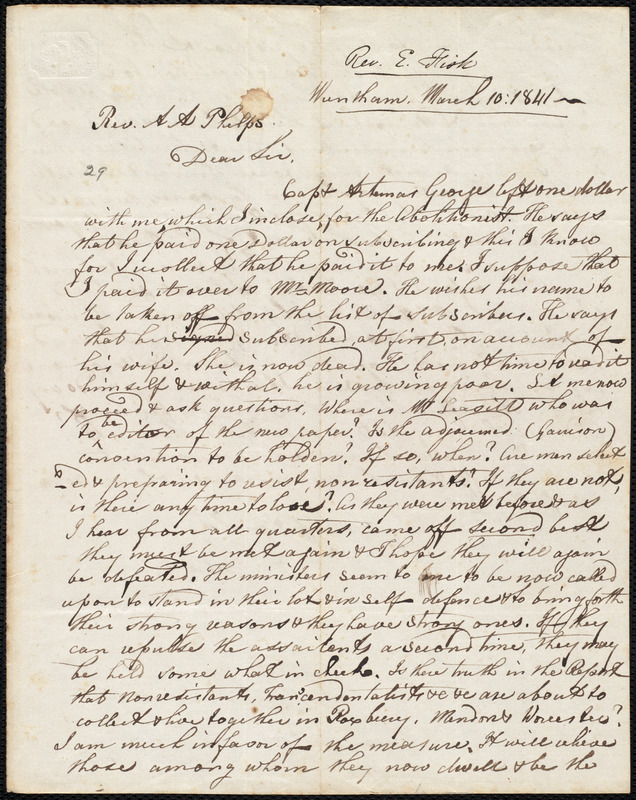 Rev. E. Fisk
Wrentham. March 10: 1841
Rev. A A Phelps.
Dear Sir.
29
Capt Artemas George left one dollar
with me, which I inclose, for the Abolitionist. He says
that he paid one dollar on subscribing & this I know
for I recollect that he paid it to me. I suppose that
I paid it over to Mr. Moore. He wishes his name to
be taken off from the list of subscribers. He says
that he signed subscribed, at first, on account of
his wife. She is now dead. He has not time to read it
himself & withal, he is growing poor. Let me now
proceed & ask questions. Where is Mr who was
to be editor of the new paper? Is the adjourned (Garrison)
convention to be holden? If so, when? Are men select
ed & preparing to resist, nonresistants? If they are not,
is there any time to lose? As they were met before & as
I hear from all quarters, came off second best
they must be met again & I hope they will again
be defeated. The ministers seem to me to be now called
upon to stand in their lot & in self defence & to bring forth
their strong reasons & they have strong ones. If they
can repulse the assailants a second time, they may
be held some what in check. Is there truth in the Report
that Nonresistants, Transcendentalists &c &c are about to
collect & live together in Roxbury, Mendon & Worcester?
I am much in favor of the measure. It will relieve
those among whom they now dwell & be the